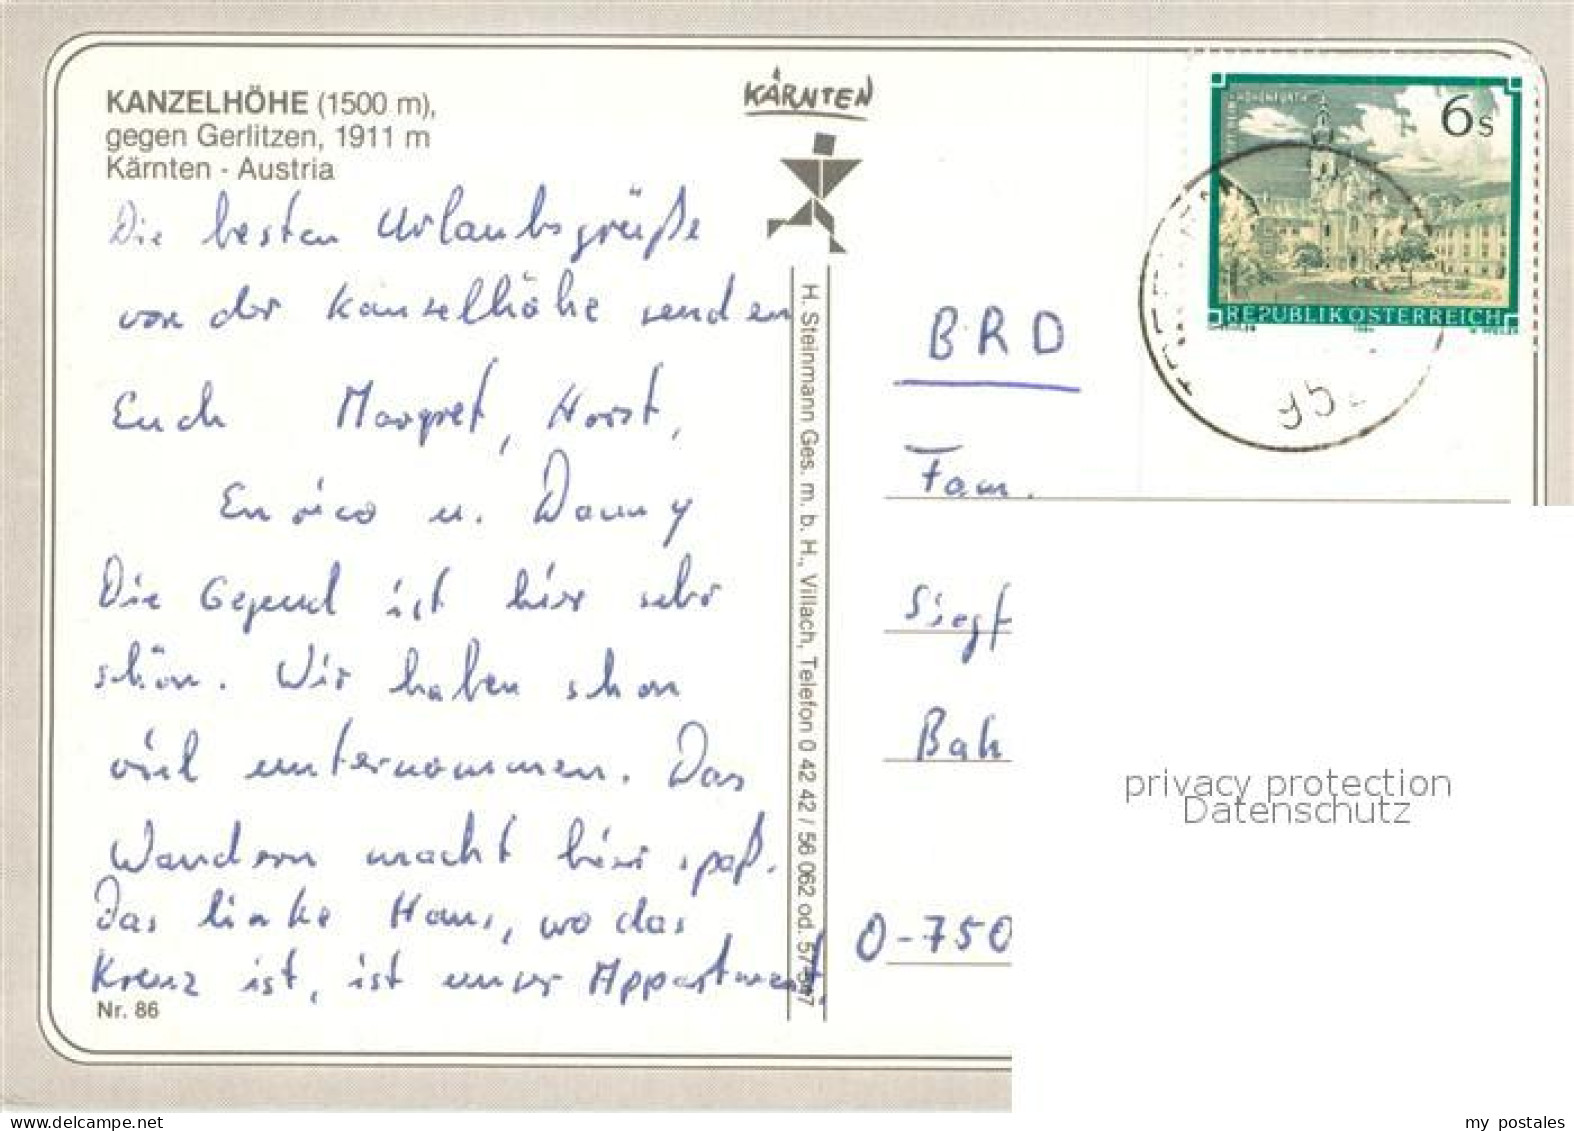 KANZELHÖHE (1500 m),
gegen Gerlitzen, 1911 m
Kärnten - Austria
KÄRNTEN
Die besten Urlaubsgrüße
von der Kanzelhöhe senden
Euch Margret, Horst,
Enrico u. Danny
Die Gegend ist hier sehr
schön. Wir haben schon
viel unternommen. Das
Wandern macht hier spaß.
Das linke Haus, wo das
Kreuz ist, ist unser Appartment.
Nr. 86
H. Steinmann Ges. m. b. H., Villach, Telefon 0 42 42 / 56 062 od. 57
6 S
REPUBLIK ÖSTERREICH
95
BRD
Fam.
Siegf
Bah
O-750
privacy protection
Datenschutz
my-postcards-sammelt.delcampe.net
my postales